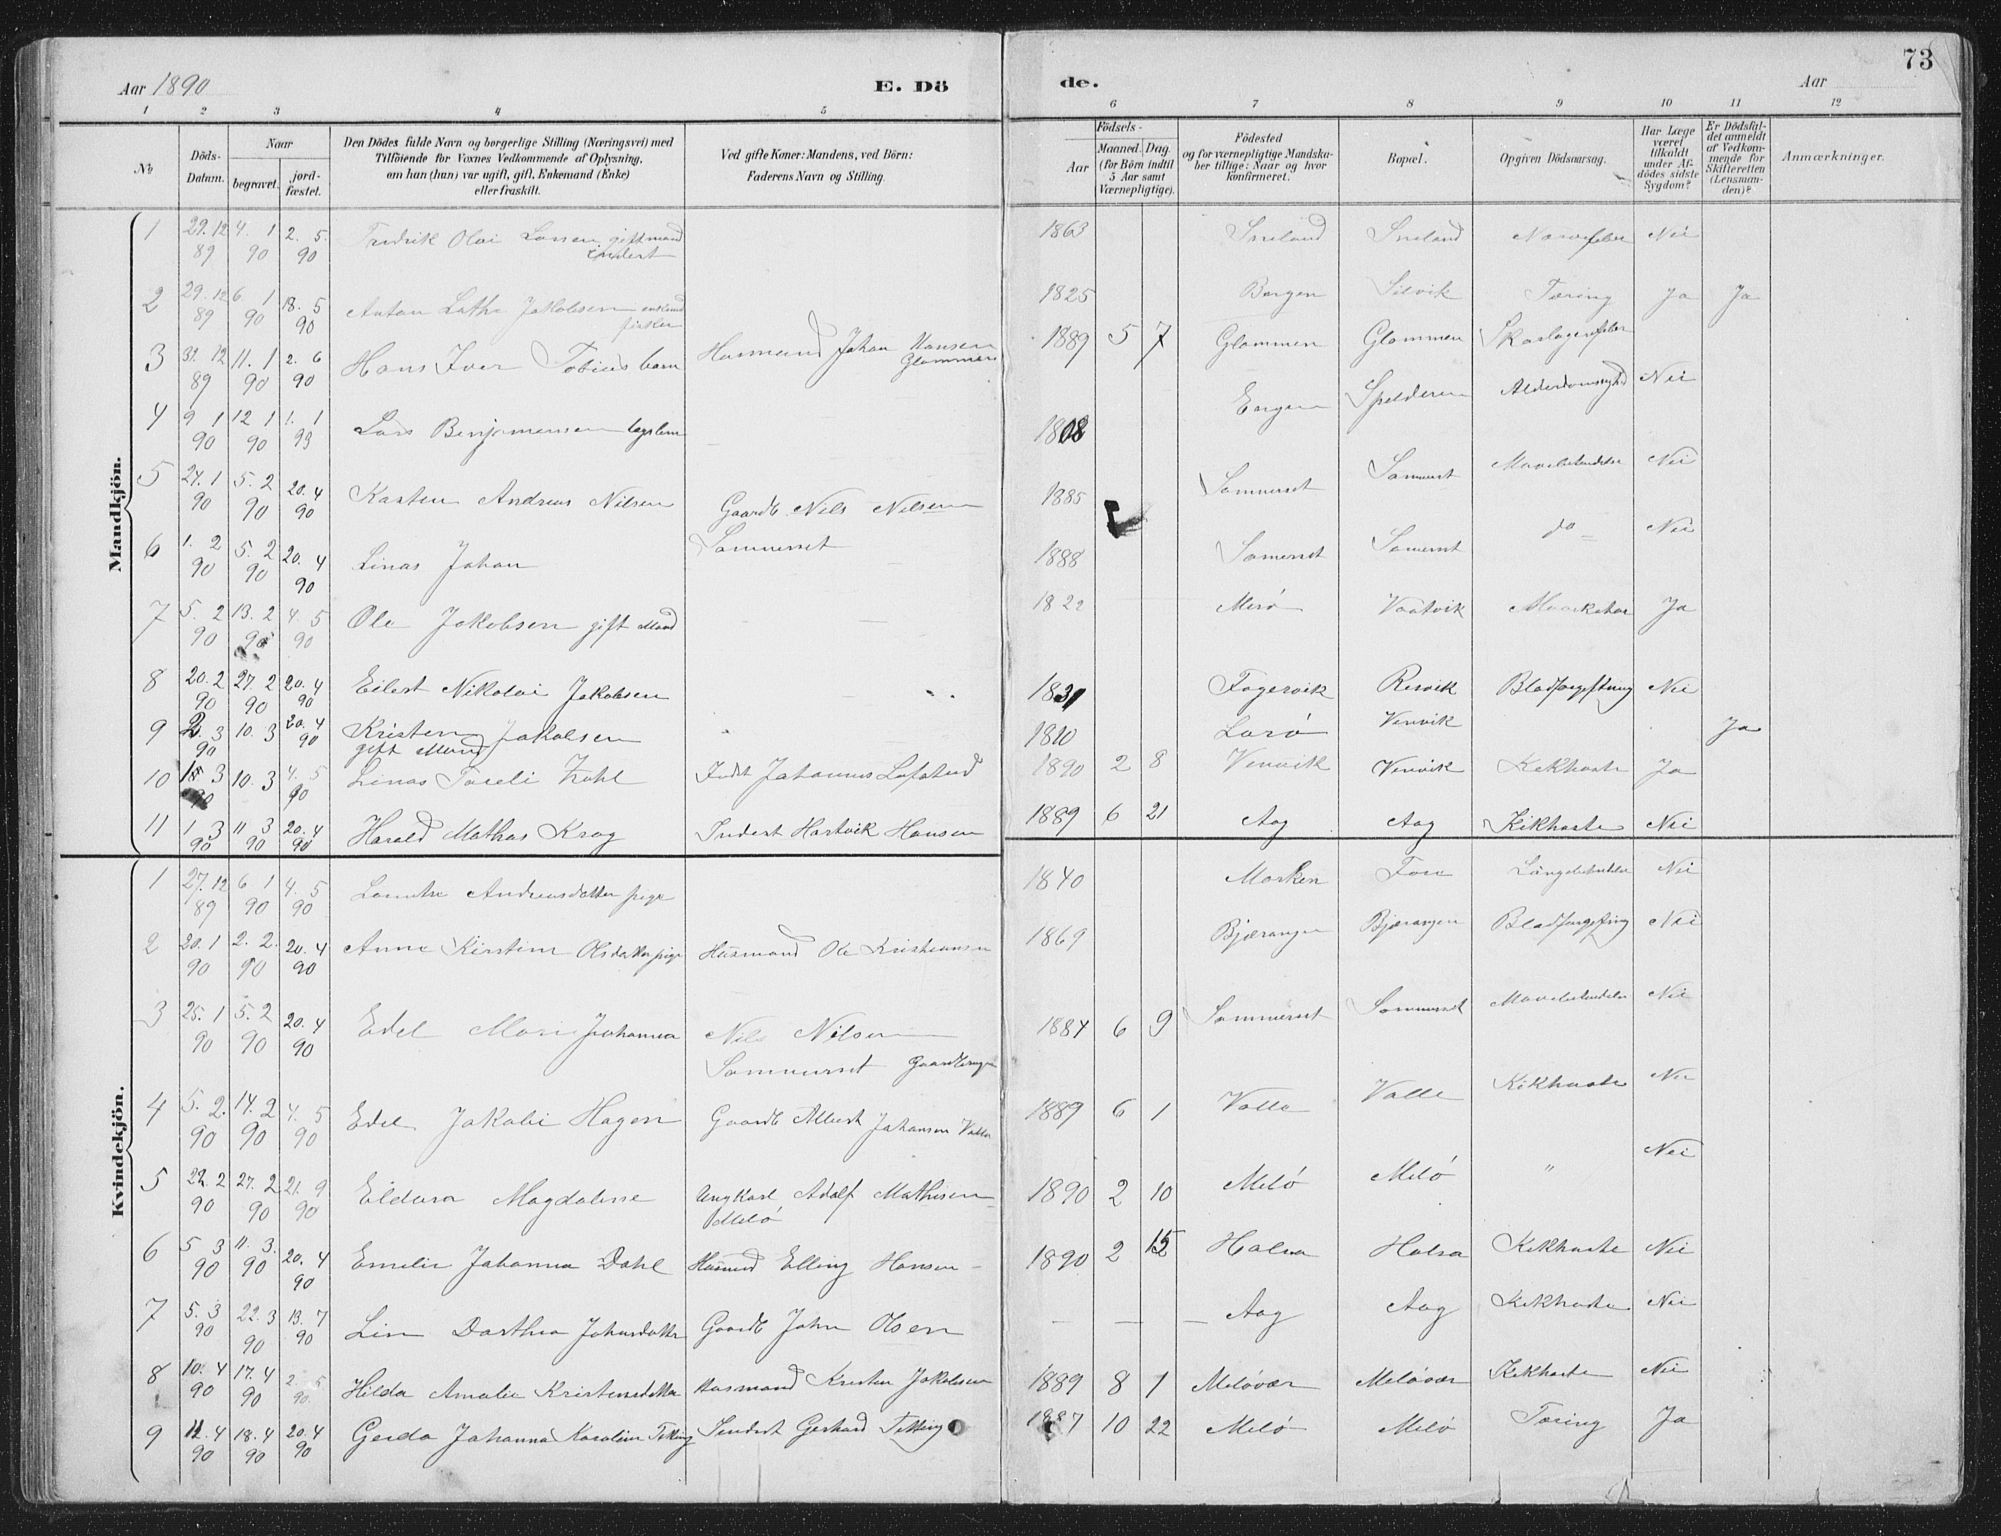 73
Aar 1890 E. Dö de. Aar
1 2 3 4 5 6 7 8 9 10 11 12
No
Döds-Datum.
Naar
begravet.
jord-fæstet.
Den Dödes fulde Navn og borgerlige Stilling (Næringsvei) med
Tilföiende for Voxnes Vedkommende af Oplysning,
om han (hun) var ugift, gift, Enkemand (Enke)
eller fraskilt.
Ved gifte Koner: Mandens, ved Börn:
Faderens Navn og Stilling.
Födsels-
Aar
Maaned. Dag.
(for Börn indtil
5 Aar samt
Værnepligtige).
Födested
og for værnepligtige Mandska-
ber tillige: Naar og hvor
konfirmeret.
Bopæl.
Opgiven Dödsaarsag.
Har Læge
været
tilkaldt
under Af-
dödes sidste
Sygdom?
Er Dödsfal-
det anmeldt
af Vedkom-
mende for
Skifteretten
(Lensman-
den)?
Anmærkninger.
Mandkjön.
1 29.12 89 4. 1 90 2. 5. 90 Fredrik Olai Larsen gift mand inderst 1863 Nervefeber Nei
2 29.12 89 6 1 90 18. 5 90 Anton Jakobsen fisker 1825 Bergen Selvik Tæring Ja Ja
3 31. 12 89 11. 1 90 2. 6 90 Hans Iver Tobius barn Husmand Johan Hansen Glommen 1889 5 7 Glommen Glommen Skarlagensfeber
4 9 1 90 12 1 90 1. 1 93 Lars Benjaminsen lægslem 1808 Engen Spelderen Alderdomssvaghed Nei
5 24. 1 90 5. 2 90 20. 4 90 Karsten Andreas Nilsen Gaardb. Nils Nilsen 1885 Sommerset Sommerset Mavebetændelse Nei
6 1. 2 90 5. 2 90 20. 4 90 Linas Johan Sommerset 1888 Sommerset Sommerset do Nei
7 5. 2 90 13. 2 90 4. 5 90 Ole Jakobsen gift Mand 1822 Melö Vaatvik Mavekatar Ja
8 20. 2 90 27. 2 90 20. 4 90 Eilert Nikolai Jakobsen 1831 Fagervik Resvik Blodforgiftning Nei
9 2. 3 90 10. 3 20. 4 90 Kristen Jakobsen gift Mand 1810 Venvik Ja
10 3 90 10. 3 4. 5 90 Linas Toreli Zahl Indst Johannes Lofsted 1890 2 8 Venvik Venvik Kikhoste Ja
11 1 3 90 11 3 90 20. 4 90 Harald Mathas Krog Inderst Hartvik Hansen 1889 6 21 Aag Aag Kikhoste Nei
Kvindekjön.
1 27. 12 89 6 1 90 4. 5 90 Andreasdatter pige 1840 Marken Fore Lungebetændelse Nei
2 20. 1 90 2. 2. 90 20. 4 90 Anne Kirstine Olsdatter pige Husmand Ole Kristiansen 1869 Bjærangen Bjærangen Blodforgiftning Nei
3 25. 1 90 5. 2 90 20. 4 90 Edel Mari Johanna Nils Nilsen Sommerset Gaardbruger 1884 6 9 Sommerset Sommerset Mavebetændelse Nei
4 5. 2. 90 14. 2 90 4. 5 90 Edel Jakobe Hagen Gaardb Albert Johansen Valla 1889 6 1 Valla Valle Kikhoste Nei
5 22. 2 90 27. 2 90 21. 9 90 Eldora Magdalene Ungkarl Adolf Mathisen Melö 1890 2 10 Melö Melö " Nei
6 5 3 90 11. 3. 90 20. 4 90 Emelie Johanna Dahl Husmd Elling Hansen 1890 2 15 Halsa Halsa Kikhoste Nei
7 5. 3 90 22. 3 90 13. 7 90 Lin Dorthea Johnsdatter Gaardb John Olsen — — — Aag Aag Kikhoste Nei
8 10. 4 90 17. 4 90 2. 5 90. Hilda Amalie Kristensdatter Husmand Kristen Jakobsen 1889 8 1 Melövær Melövær Kikhoste Nei
9 11. 4 90 18. 4 90 20. 4 90 Gerda Johanna Karoline Tetting Inderst Gerhard Tetting 1887 10 22 Melö Melö Tæring Ja